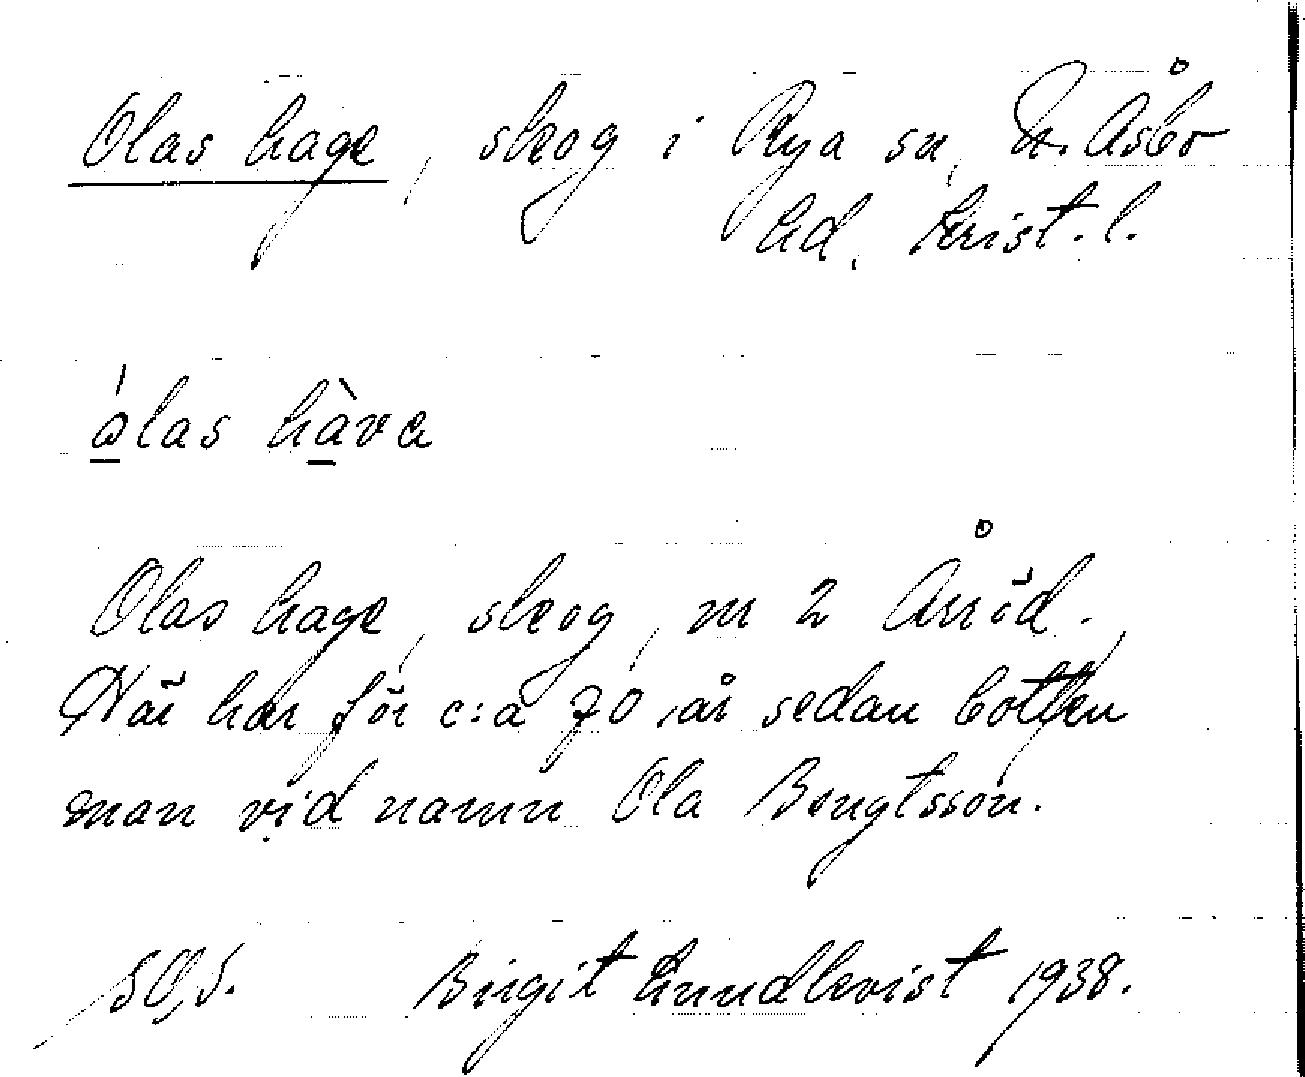 Olas hage, skog i Rya sn, N. Åsbo
hd. Krist. l.
ålas hàva
Olas hage, skog, nr 2 Årröd.
Här har för c:a 70 år sedan bott en
man vid namn Ola Bengtsson.
Birgit Lundkvist 1938.